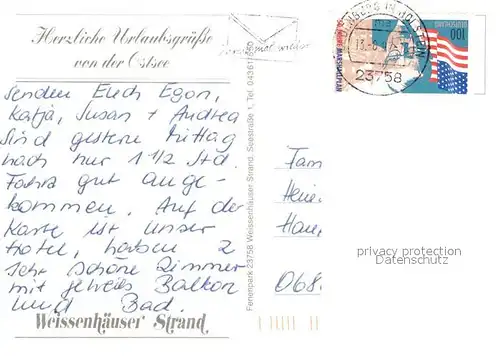 Herzliche Urlaubsgrüße
von der Ostsee
senden Euch Egon,
Katja, Susan + Andrea
Sind gestern Mittag
nach nur 1 1/2 Std.
Fahrt gut ange-
kommen. Auf der
Karte ist unser
Hotel, haben 2
sehr schöne Zimmer
mit jeweils Balkon
und Bad.
Weissenhäuser Strand
Ferienpark 23758 Weissenhäuser Strand, Seestraße 1, Tel. 04361/
mal wieder
IN HOLSTEIN
23758
MARSHALLPLAN
100
DEUTSCHLAND
Fam
Hein
Han
068
privacy protection
Datenschutz